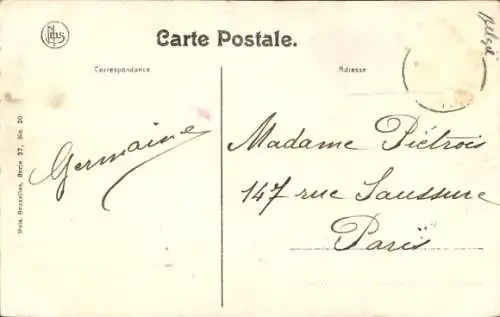 NELS
Carte Postale.
België
Correspondance
Adresse
Nels, Bruxelles, Serie 27, No. 20
Germaine
Madame Piétrois
147 rue Saussure
Paris